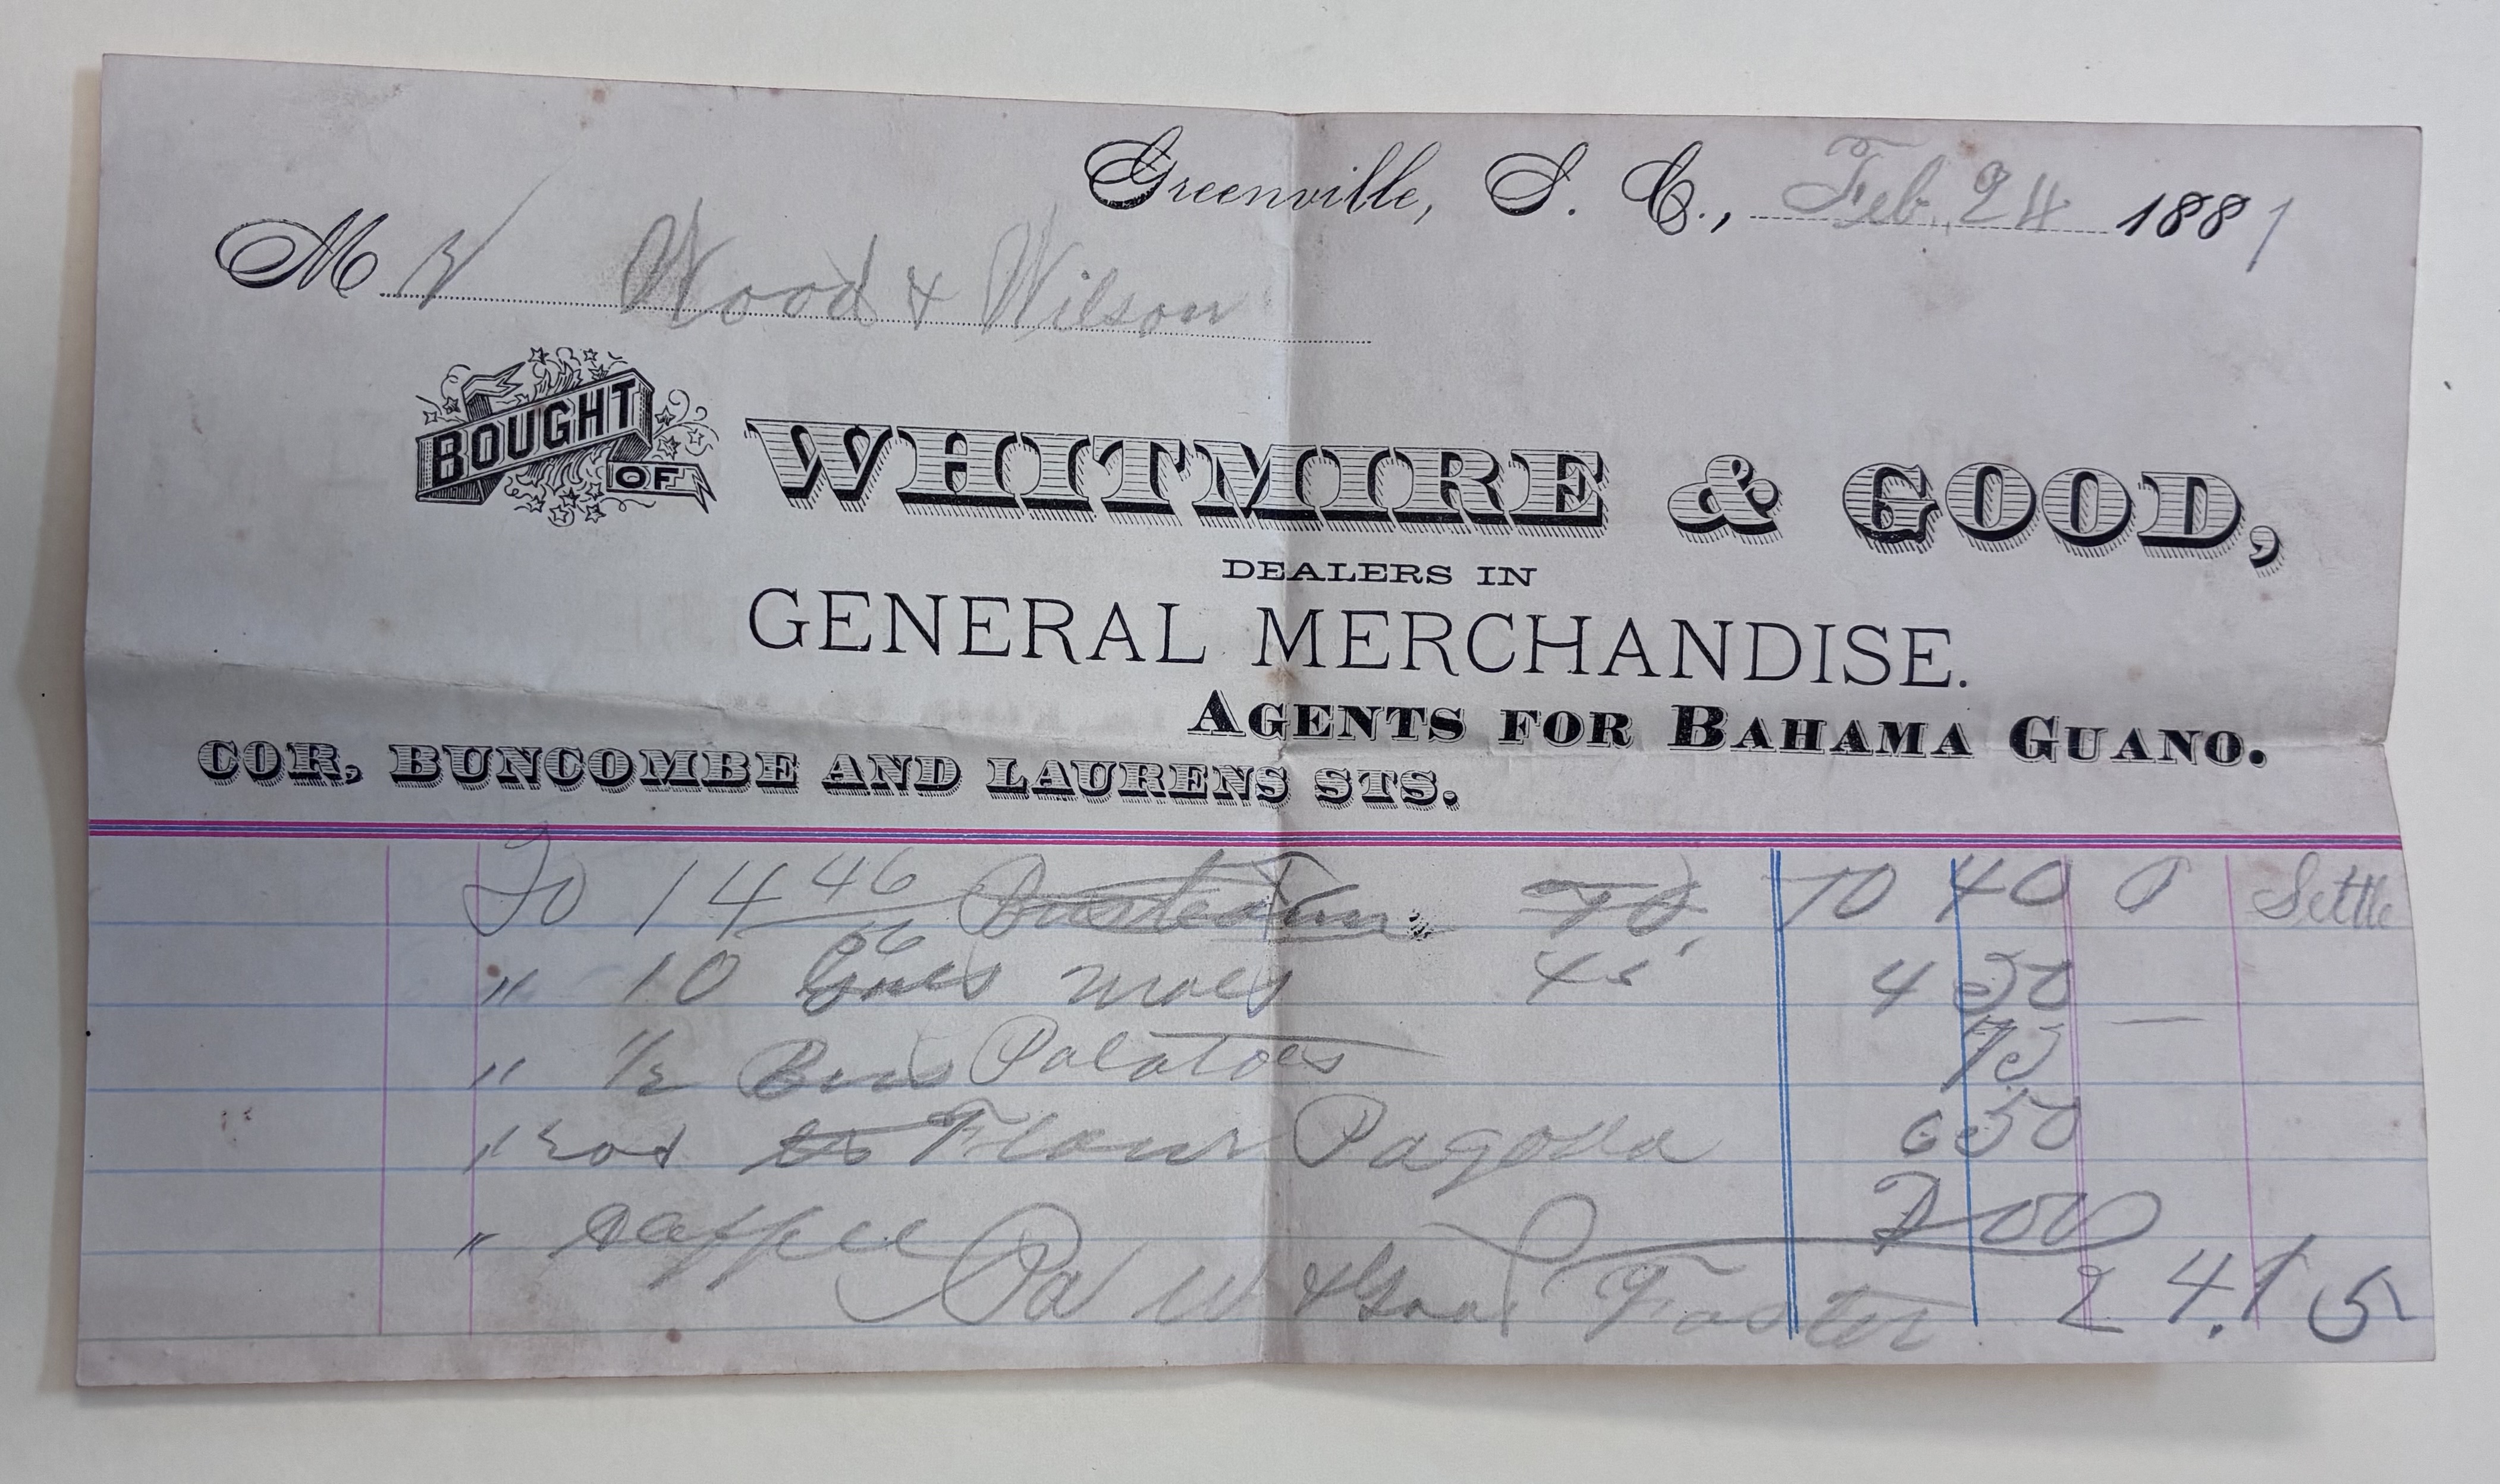 Greenville, S. C., Feb. 24 1881
M Wood & Wilson
BOUGHT OF WHITMIRE & GOOD,
DEALERS IN
GENERAL MERCHANDISE.
AGENTS FOR BAHAMA GUANO.
COR. BUNCOMBE AND LAURENS STS.
To 14 46 70. 10 40 Settle
" 10 56 45 4 50
" 1/2 Potatoes 75
" Flour Pagoda 6 50
" 2 00
Pd W & Foster 24.15